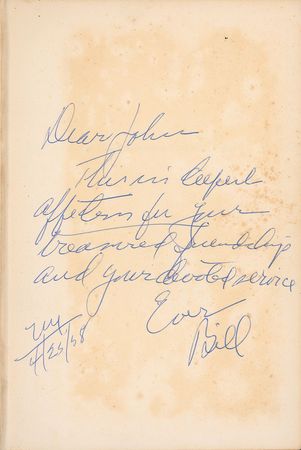 Dear John
This in deepest
affection for your
treasured friendship
and your devoted service
Ever
Bill
NY
4/25/58